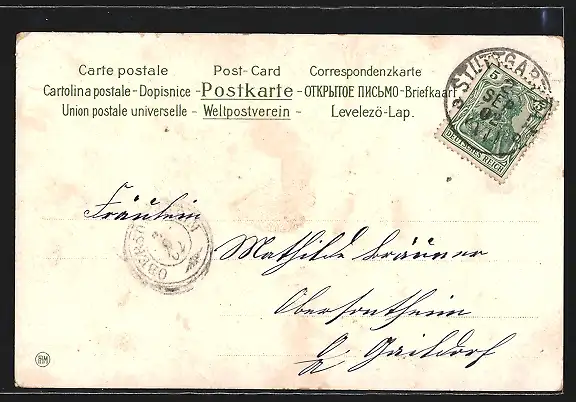 Carte postale Post-Card Correspondenzkarte
Cartolina postale - Dopisnice - Postkarte - ОТКРЫТОЕ ПИСЬМО - Briefkaart
Union postale universelle - Weltpostverein - Levelező-Lap.
STUTTGAR
SEP
5 5
DEUTSCHES REICH
Fräulein
OBERSO
Mathilde Bräuner
Obersontheim
Gaildorf
RM